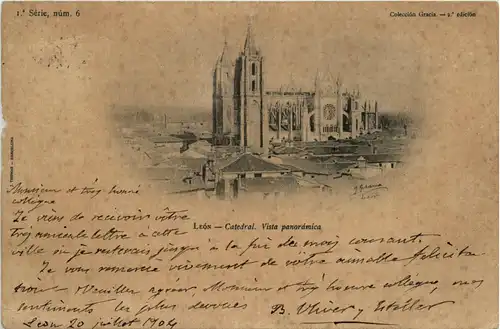 1.ª Série, núm. 6
Colección Gracia. — 2.ª edición
LEÓN — Catedral. Vista panorámica
Monsieur et très honoré
collègue
Je viens de recevoir votre
très aimable lettre à cette
ville où je resterais jusqu'à la fin de mois courant.
Je vous remercie vivement de votre aimable félicita-
tion. Veuillez agréer, Monsieur et très honoré collègue, mes
sentiments les plus dévoués
León 20 juillet 1904